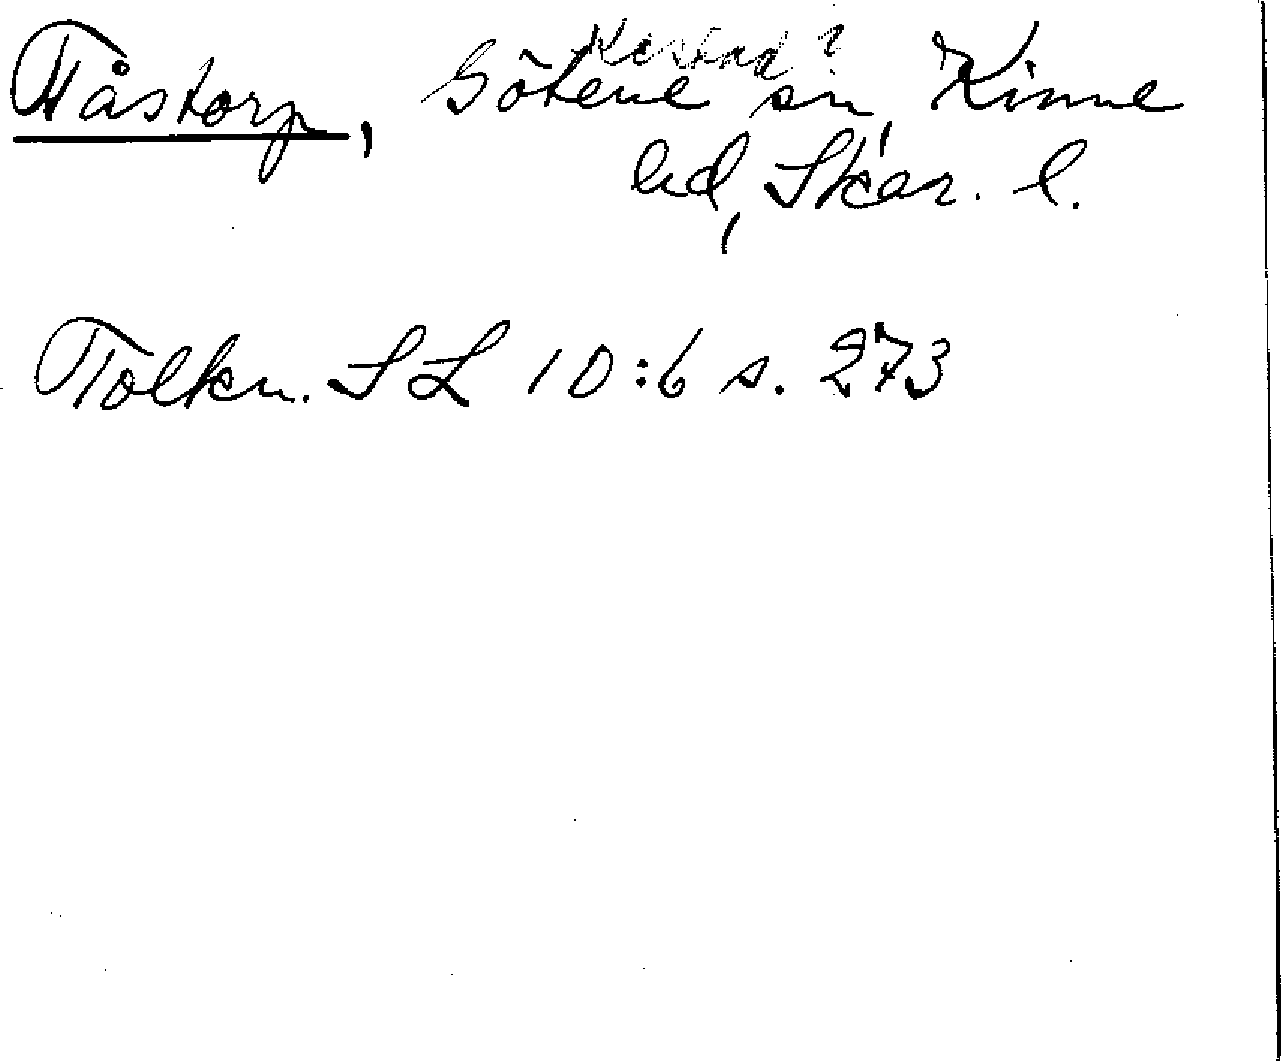 Kestad?
Tåstorp, Götene sn, Kinne
hd, Skar. l.
Tolkn. SL 10:6 s. 273